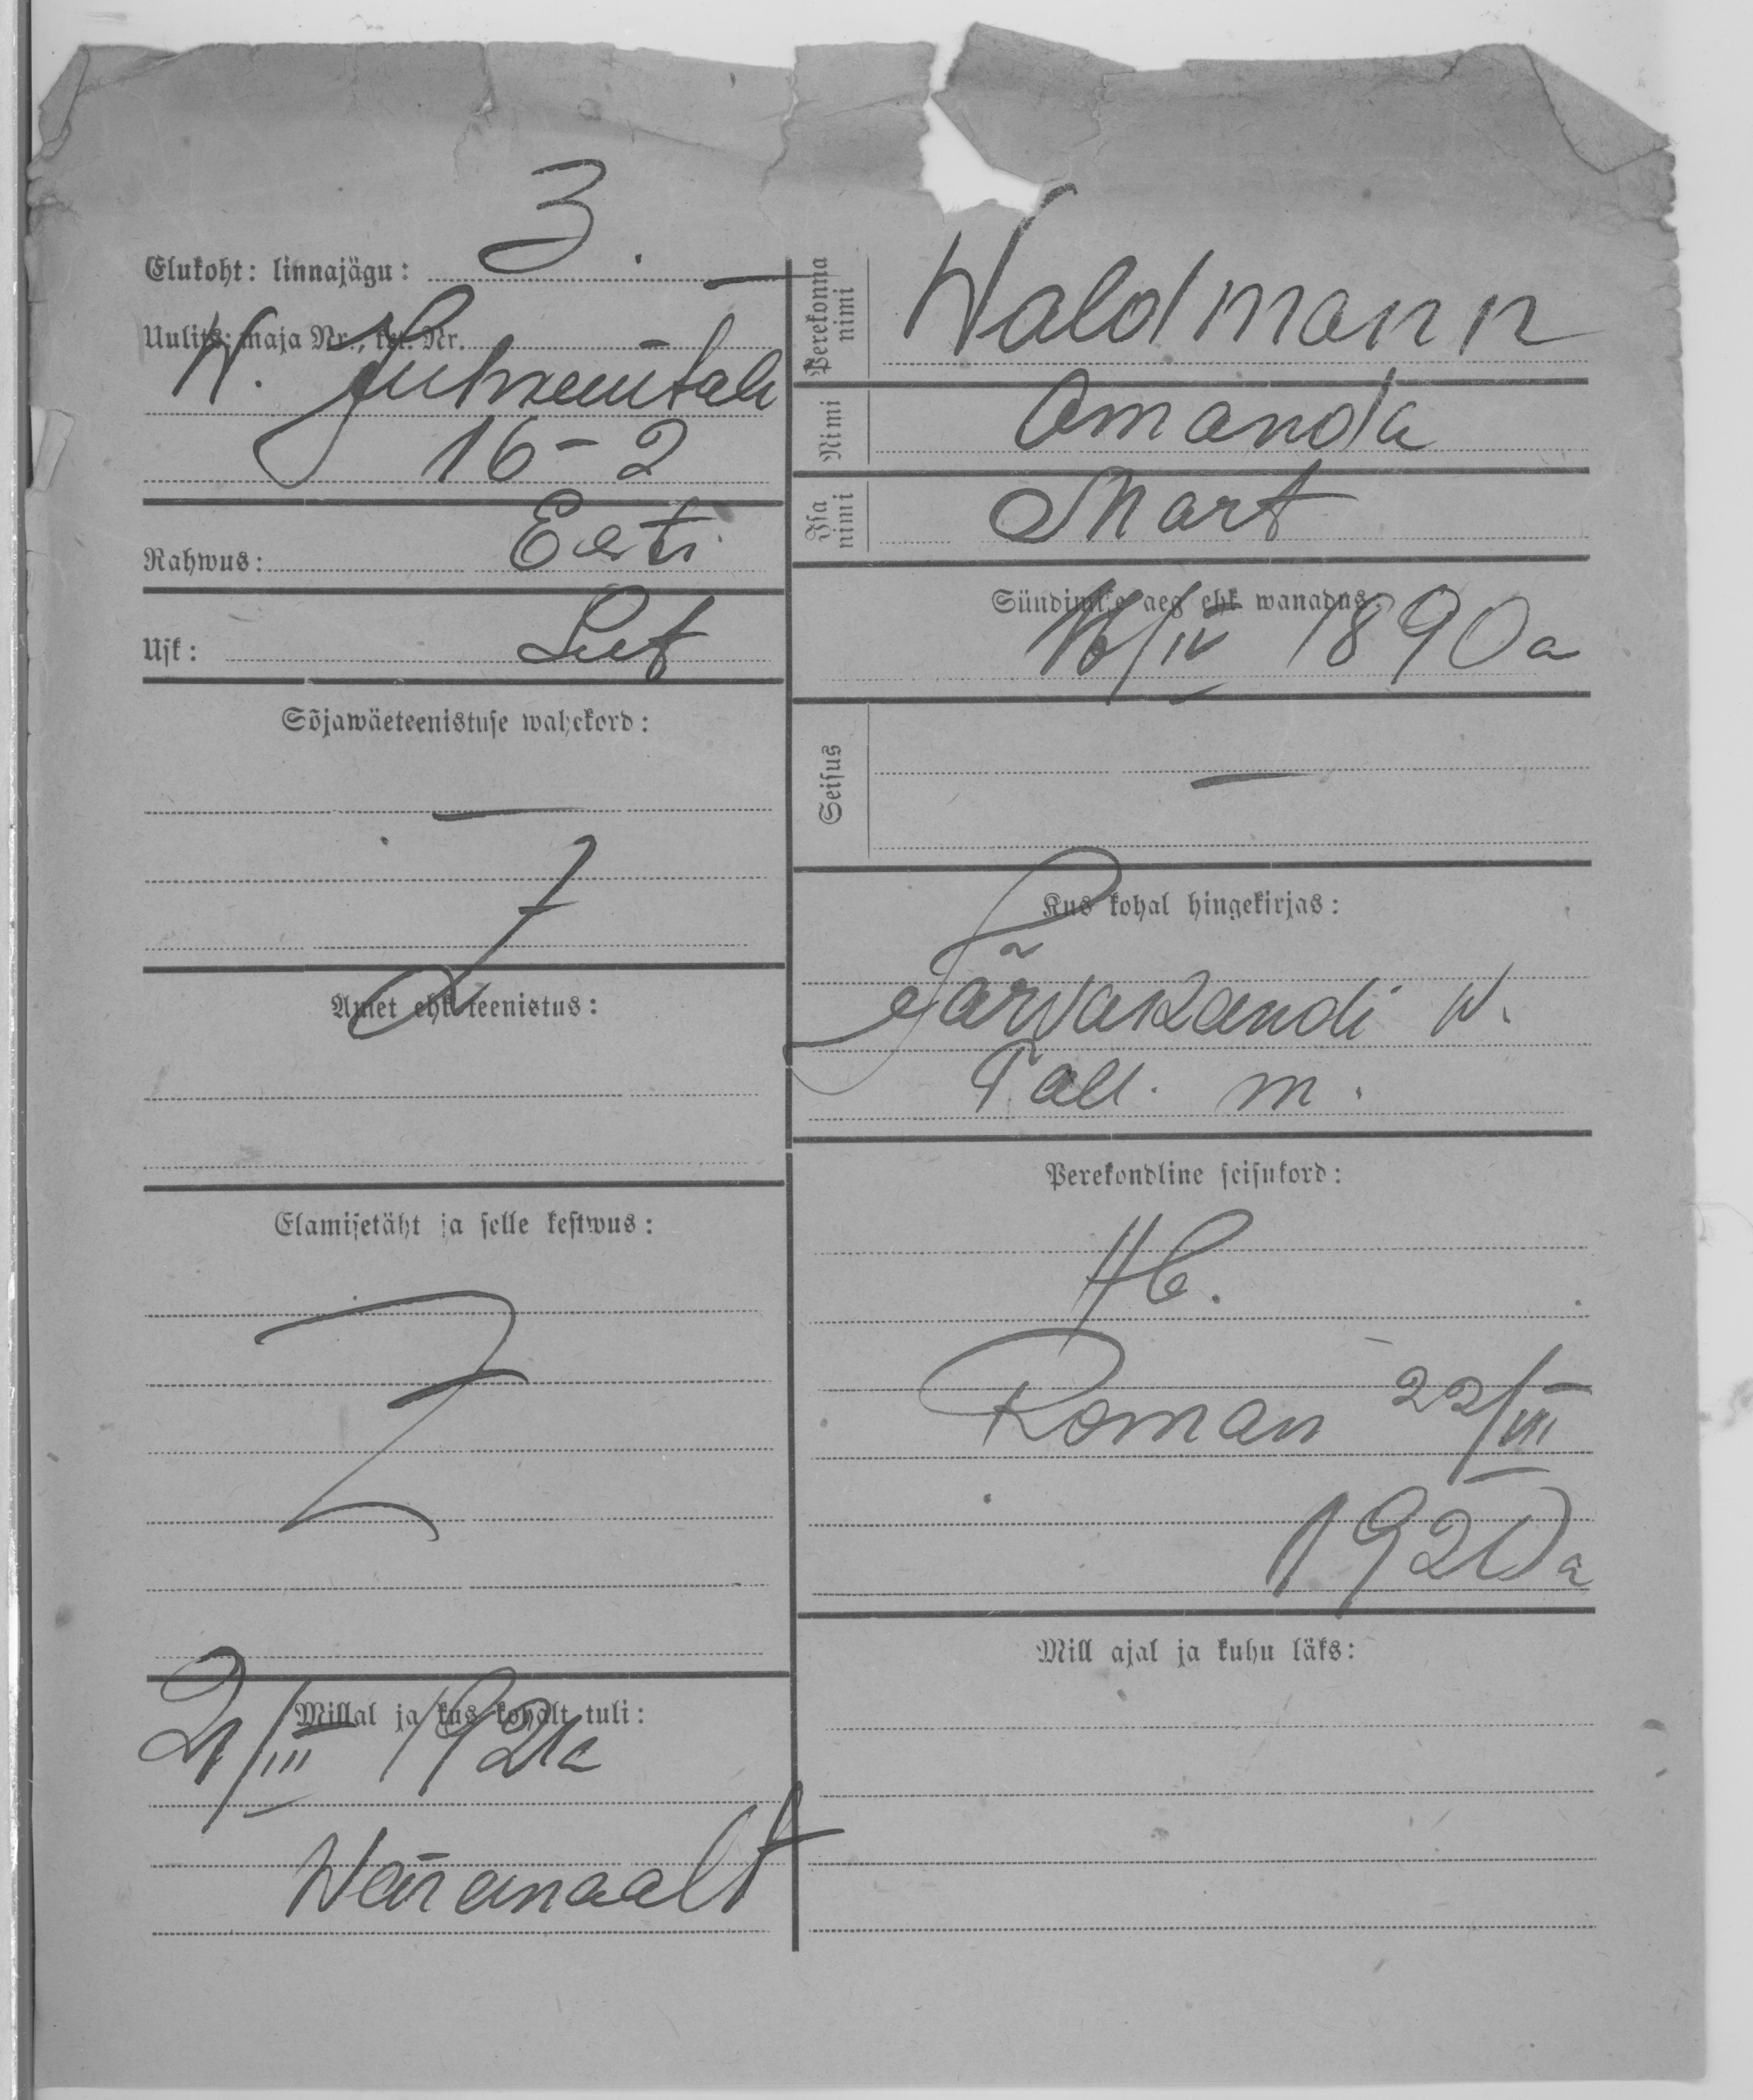 Elukoht: linnajägu: 3.
Uulits: maja Nr., krt. Nr.
W. Juhkentali
16-2
Rahwus: Eesti
Usk: Lut
Sõjawäeteenistuse wahekord:
—
Amet ehk teenistus:
Elamisetäht ja selle kestwus:
Millal ja kus kohalt tuli:
21/III 1921a
Perekonna nimi Waldmann
Nimi Amanda
Isa nimi Mart
Sündimise aeg ehk wanadus
16/IV 1890a
Seisus —
Kus kohal hingekirjas:
Järwakandi w.
Tall. m.
Perekondline seisukord:
Ab.
Roman 22/VIII
1920a
Mill ajal ja kuhu läks: